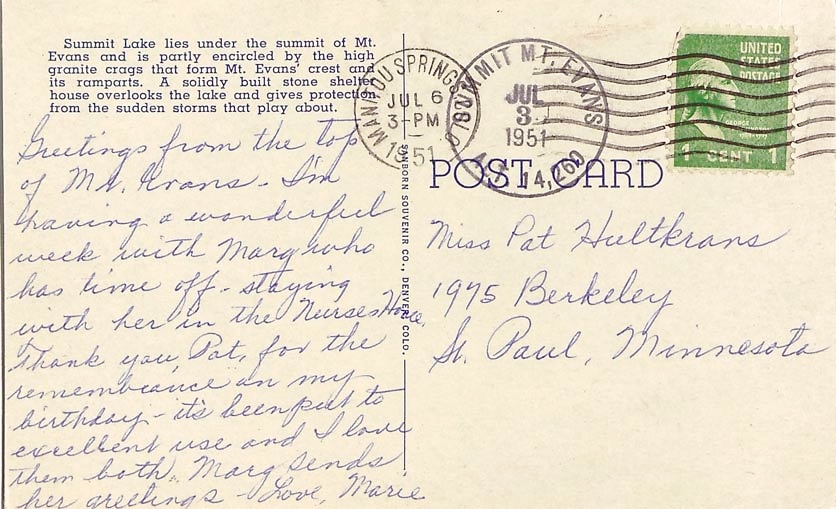 Summit Lake lies under the summit of Mt.
Evans and is partly encircled by the high
granite crags that form Mt. Evans' crest and
its ramparts. A solidly built stone shelter
house overlooks the lake and gives protection
from the sudden storms that play about.
Greetings from the top
of Mt. Evans - I'm
having a wonderful
week with Marg who
has time off - staying
with her in the Nurses Home.
Thank you, Pat, for the
remembrance on my
birthday - it's been put to
excellent use and I love
them both. Marg sends
her greetings - Love, Marie
SANBORN SOUVENIR CO., DENVER, COLO.
MANITOU SPRINGS COLO
JUL 6
3-PM
51
SUMMIT MT. EVANS
JUL
3
1951
ALT. 14,260
UNITED
STATES
POSTAGE
GEORGE
1 CENT 1
POST CARD
Miss Pat Hultkrans
1975 Berkeley
St. Paul, Minnesota